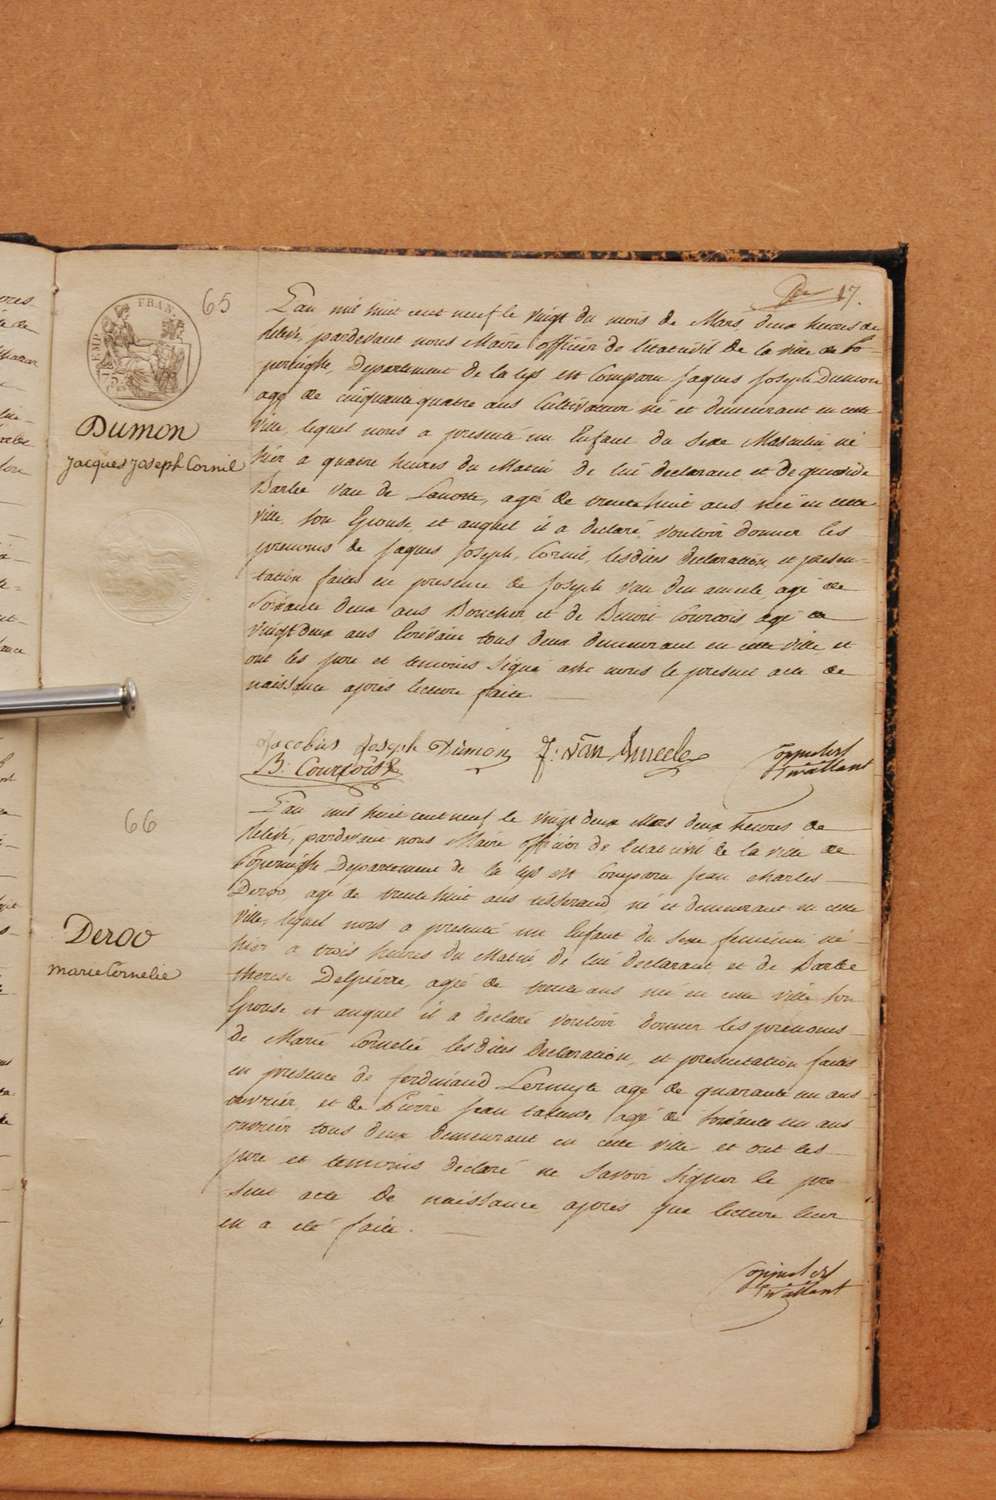 17.
65
EMP. FRAN.
DUMON
Jacques Joseph Cornil
L'an mil huit cent neuf le vingt du mois de Mars, deux heures de
relevé, pardevant nous Maire officier de l'état civil de la ville de Po-
peringhe, Departement de la Lys est Comparu Jaques Joseph Dumon
agé de cinquante quatre ans Cultivateur né et demeurant en cette
ville, lequel nous a presenté un Enfant du Sexe Masculin né
hier a quatre heures du Matin de lui declarant et de
Barbe Van de Lanotte, agée de trente huit ans née en cette
ville, son Epouse, et auquel il a declaré vouloir donner les
prenoms de Jaques Joseph, Cornil, lesdites declaration, et presen-
tation faites en presence de Joseph Van den ameele agé de
Soixante deux ans Boucher et de Benoit Courtois agé de
vingt deux ans Ecrivain tous deux demeurant en cette ville et
ont les pere et temoins signé avec nous le present acte de
naissance après lecture faite.
Jacobus Joseph Dumon J: van Ameele
B: Courtois
66
DEROO
marie Cornelie
L'an mil huit cent neuf le vingt deux Mars deux heures de
relevé, pardevant nous Maire officier de l'état civil de la ville de
Poperinghe Departement de la Lys est Comparu Jean Charles
Deroo, agé de trente huit ans tisserand, né et demeurant en cette
ville, lequel nous a presenté un Enfant du Sexe feminin né
hier a trois heures du Matin de lui declarant et de Barbe
therese Delpierre, agée de trente ans née en cette ville son
Epouse et auquel il a declaré vouloir donner les prenoms
de Marie Cornelie lesdites declaration, et presentation faites
en presence de ferdinand Lermyte agé de quarante un ans
ouvrier, et de Pierre Jean agé de soixante un ans
ouvrier tous deux demeurant en cette ville et ont les
pere et temoins declaré ne savoir signer le pre
sent acte de naissance après que lecture leur
en a été faite.